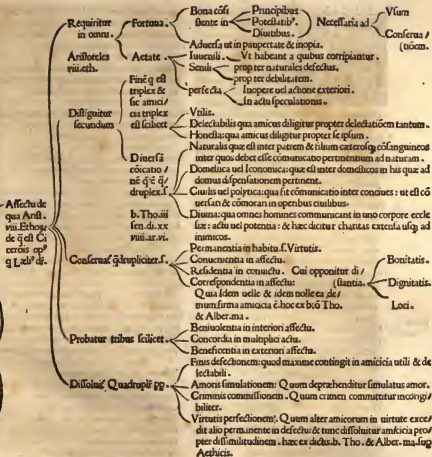 Requiritur in omni.
Fortuna.
Bona cõsi stente in
Principibus
Potestatibꝰ.
Diuitibus.
Necessaria ad
Vsum
Conserua/ tiõem.
Aduersa ut in paupertate & inopia.
Aristoteles viii.eth.
Aetate.
Iuuenili. Vt habeant a quibus corripiantur.
Senili
prop ter naturales defectus.
prop ter debilitatem.
perfecta
In opere uel actione exteriori.
In actu speculationis.
Affectu de qua Arist. viii. Ethog
Distiguitur secundum
Finé q̃ est triplex & sic amici/ cia triplex est scilicet
Vtilis.
Delectabilis qua amicus diligitur propter delectatiõem tantum.
Honesta: qua amicus diligitur propter se ipsum.
Diuersã cõicatio/
druplex.s.
b. Tho. iii sen. di. xx viiii. ar. vi.
Naturalis quæ est inter patrem & filium cæterosq; cõsanguineos
inter quos debet esse cõmunicatio pertinensq; ad naturam.
Domestica uel Iconomica: quæ est inter domesticos in his quæ ad
domus dispensationem pertinent.
Ciuilis uel polytica: qua fit cõmunicatio inter conciues: ut est cõ
uersari & cõmorari in openibus ciuilibus.
Diuina: qua omnes homines communicant in uno corpore eccle
siæ: actu uel potentia: & hæc dicitur charitas extensa usq; ad
inimicos.
Conseruat q̃drupliciter.s.
Permanentia in habitu.f. Virtutis.
Conuenientia in affectu.
Residentia in conuictu. Cui opponitur di/ stantia.
Bonitatis.
Dignitatis.
Loci.
Correspondentia in affectu:
Quia Idem uelle & idem nolle ea de/
mum firma amicitia ẽ. hoc ex b. Tho.
& Alber. ma.
Probatur tribus scilicet.
Beniuolentia in interiori affectu.
Concordia in multiplici actu.
Beneficentia in exteriori affectu.
Dissoluit Quadruplr pp.
Finis defectionem: quod maxime contingit in amicicia utili & de
lectabili.
Amoris simulationem: Quum depræhenditur simulatus amor.
Criminis commissionem. Quum crimen committitur incorigi/
biliter.
Virtutis perfectionem. Quum alter amicorum in uirtute exce/
dit alio permanente in defectu: & tunc dissoluitur amicicia pro/
pter dissimilitudinem. hæc ex dictis. b. Tho. & Alber. ma. sup
Aethicis.